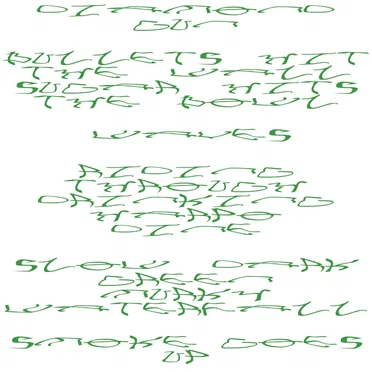 DIAMOND
GUN
BULLETS HIT
THE WALL
SUGAR IN
THE BOWL
WAVES
RIDING
THROUGH
DRINKING
SLOW DARK
GREEN
MURKY
WATERFALL
SMOKE GOES
UP